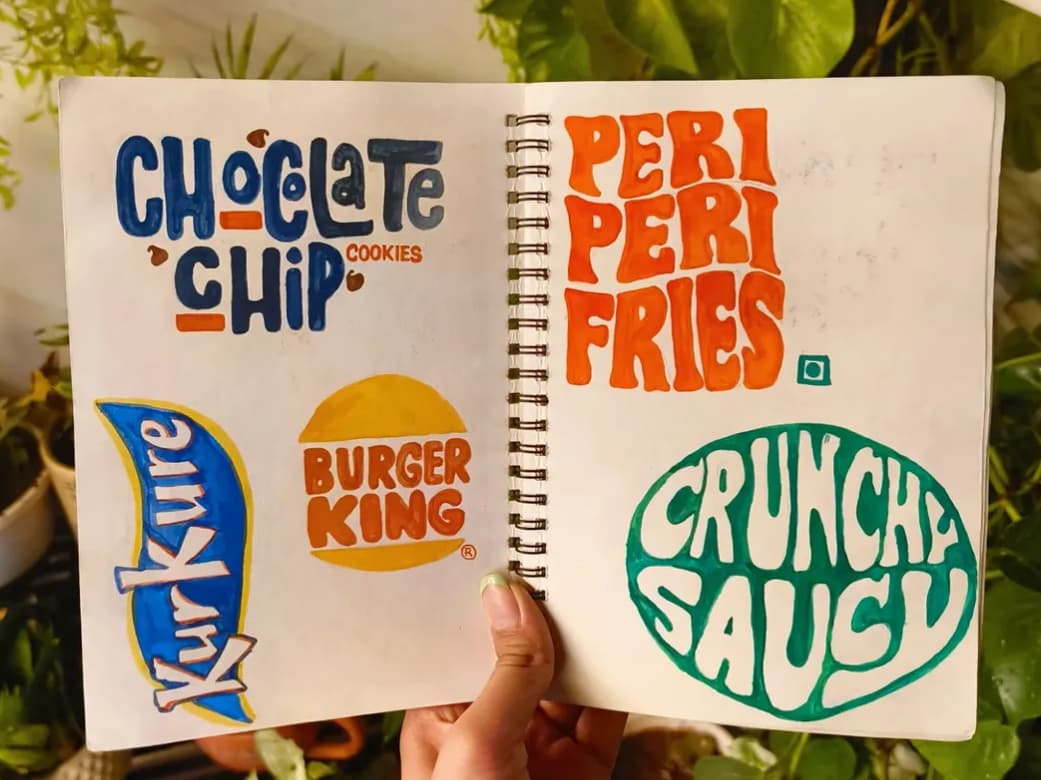 CHoCoLaTe
CHiP COOKIES
KurKure
BURGER
KING ®
PERI
PERI
FRIES
CRUNCHY
SAUCY